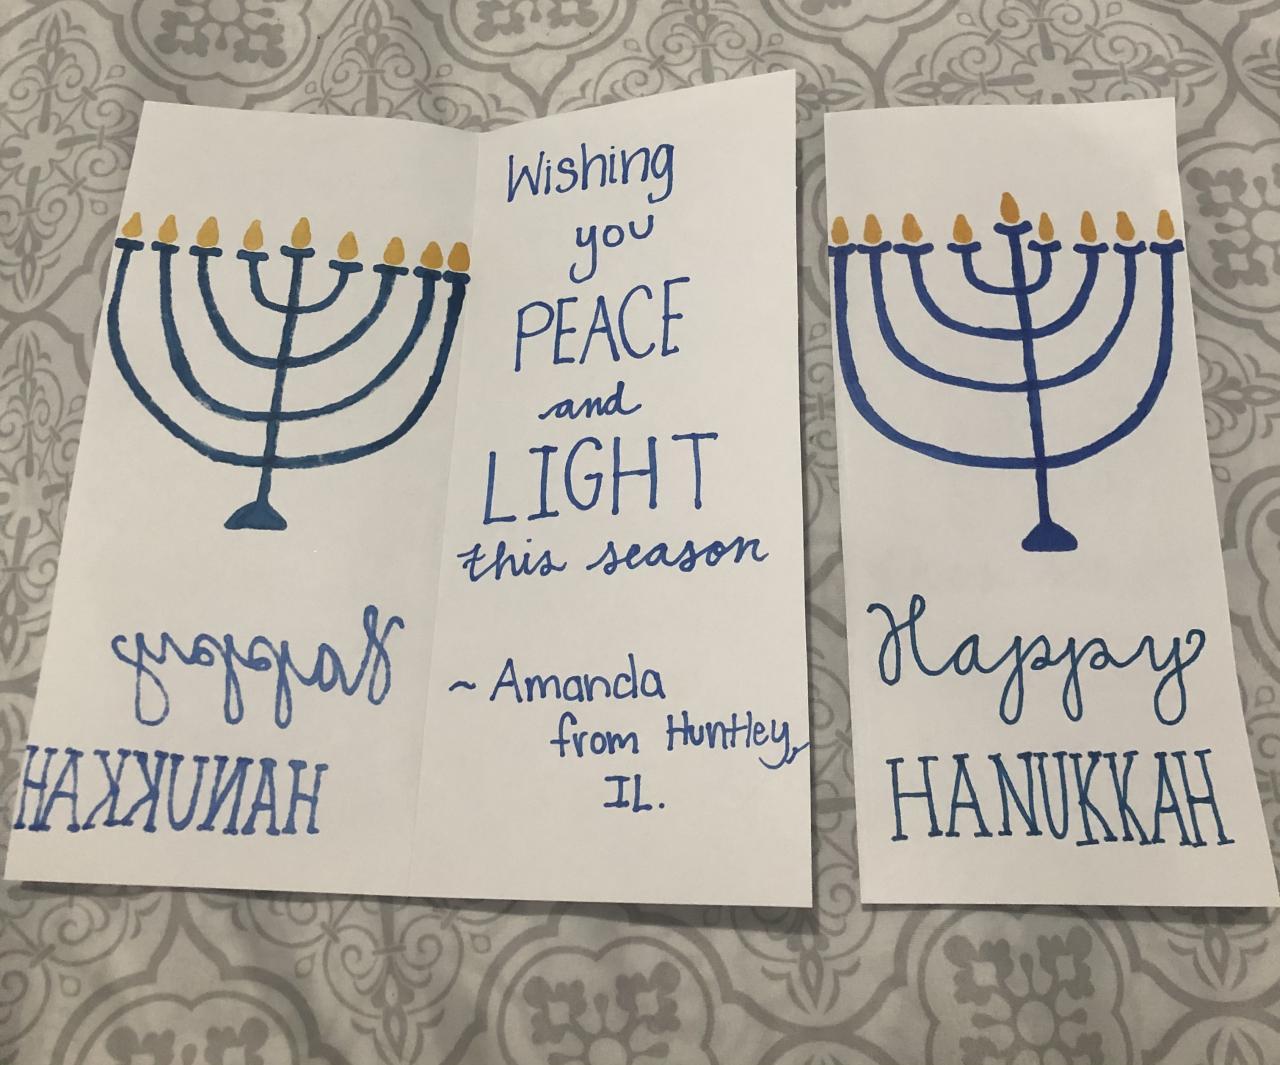 Happy
HANUKKAH
Wishing
you
PEACE
and
LIGHT
this season
~ Amanda
from Huntley,
IL.
Happy
HANUKKAH